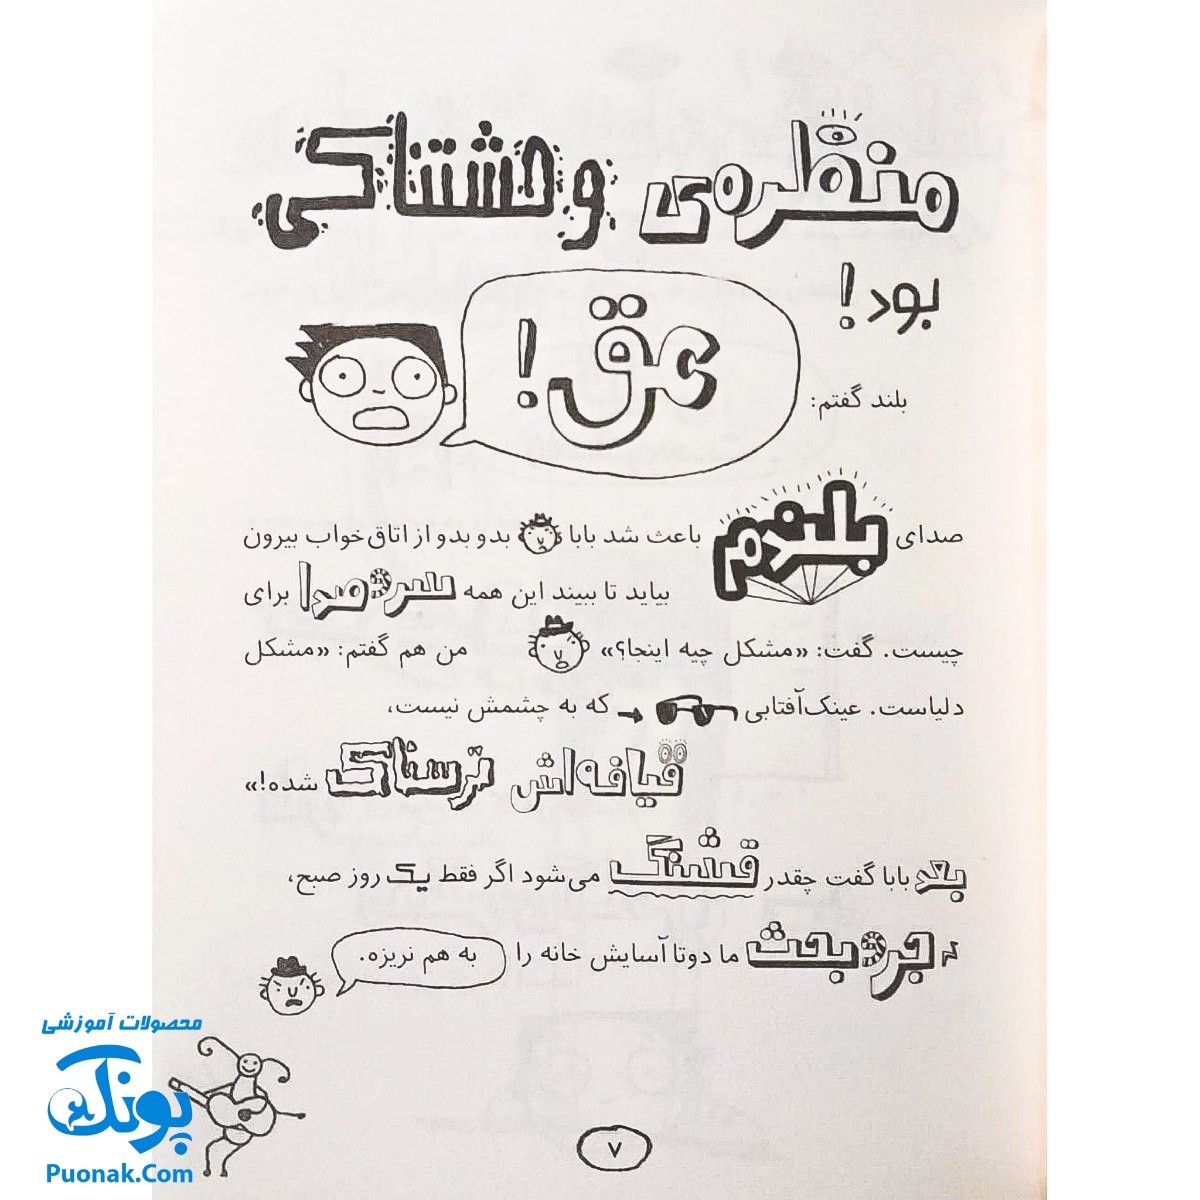 منظره‌ی وحشتناکی
بود!
بلند گفتم:
عق!
صدای بلندم باعث شد بابا بدو بدو از اتاق خواب بیرون
بیاید تا ببیند این همه سر و صدا برای
چیست. گفت: «مشکل چیه اینجا؟» من هم گفتم: «مشکل
دلیاست. عینک‌آفتابی که به چشمش نیست،
قیافه‌اش ترسناک شده!»
بعد بابا گفت چقدر قشنگ می‌شود اگر فقط یک روز صبح،
جر و بحث ما دوتا آسایش خانه را به هم نریزه.
محصولات آموزشی
پونک
Puonak.Com
۷